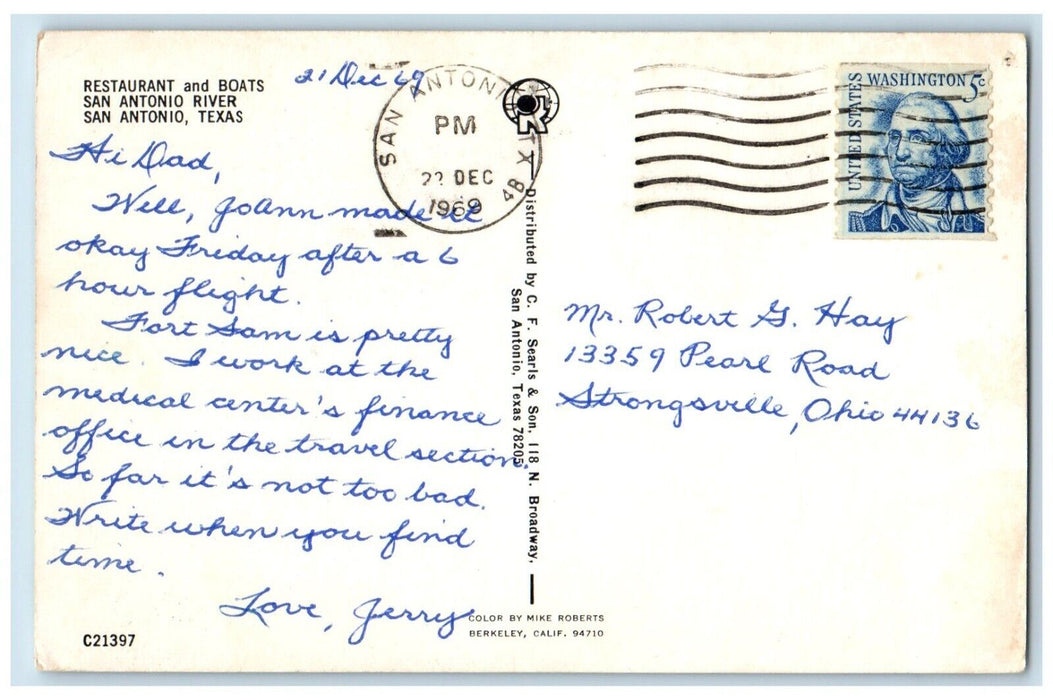 RESTAURANT and BOATS
SAN ANTONIO RIVER
SAN ANTONIO, TEXAS
21 Dec 69
Hi Dad,
Well, JoAnn made it
okay Friday after a 6
hour flight.
Fort Sam is pretty
nice. I work at the
medical center's finance
office in the travel section.
So far it's not too bad.
Write when you find
time.
Love, Jerry
C21397
SAN ANTONIO TX
PM
22 DEC
1969
4B
Distributed by C. F. Searls & Son, 118 N. Broadway,
San Antonio, Texas 78205
COLOR BY MIKE ROBERTS
BERKELEY, CALIF. 94710
UNITED STATES
WASHINGTON 5c
Mr. Robert G. Hay
13359 Pearl Road
Strongsville, Ohio 44136